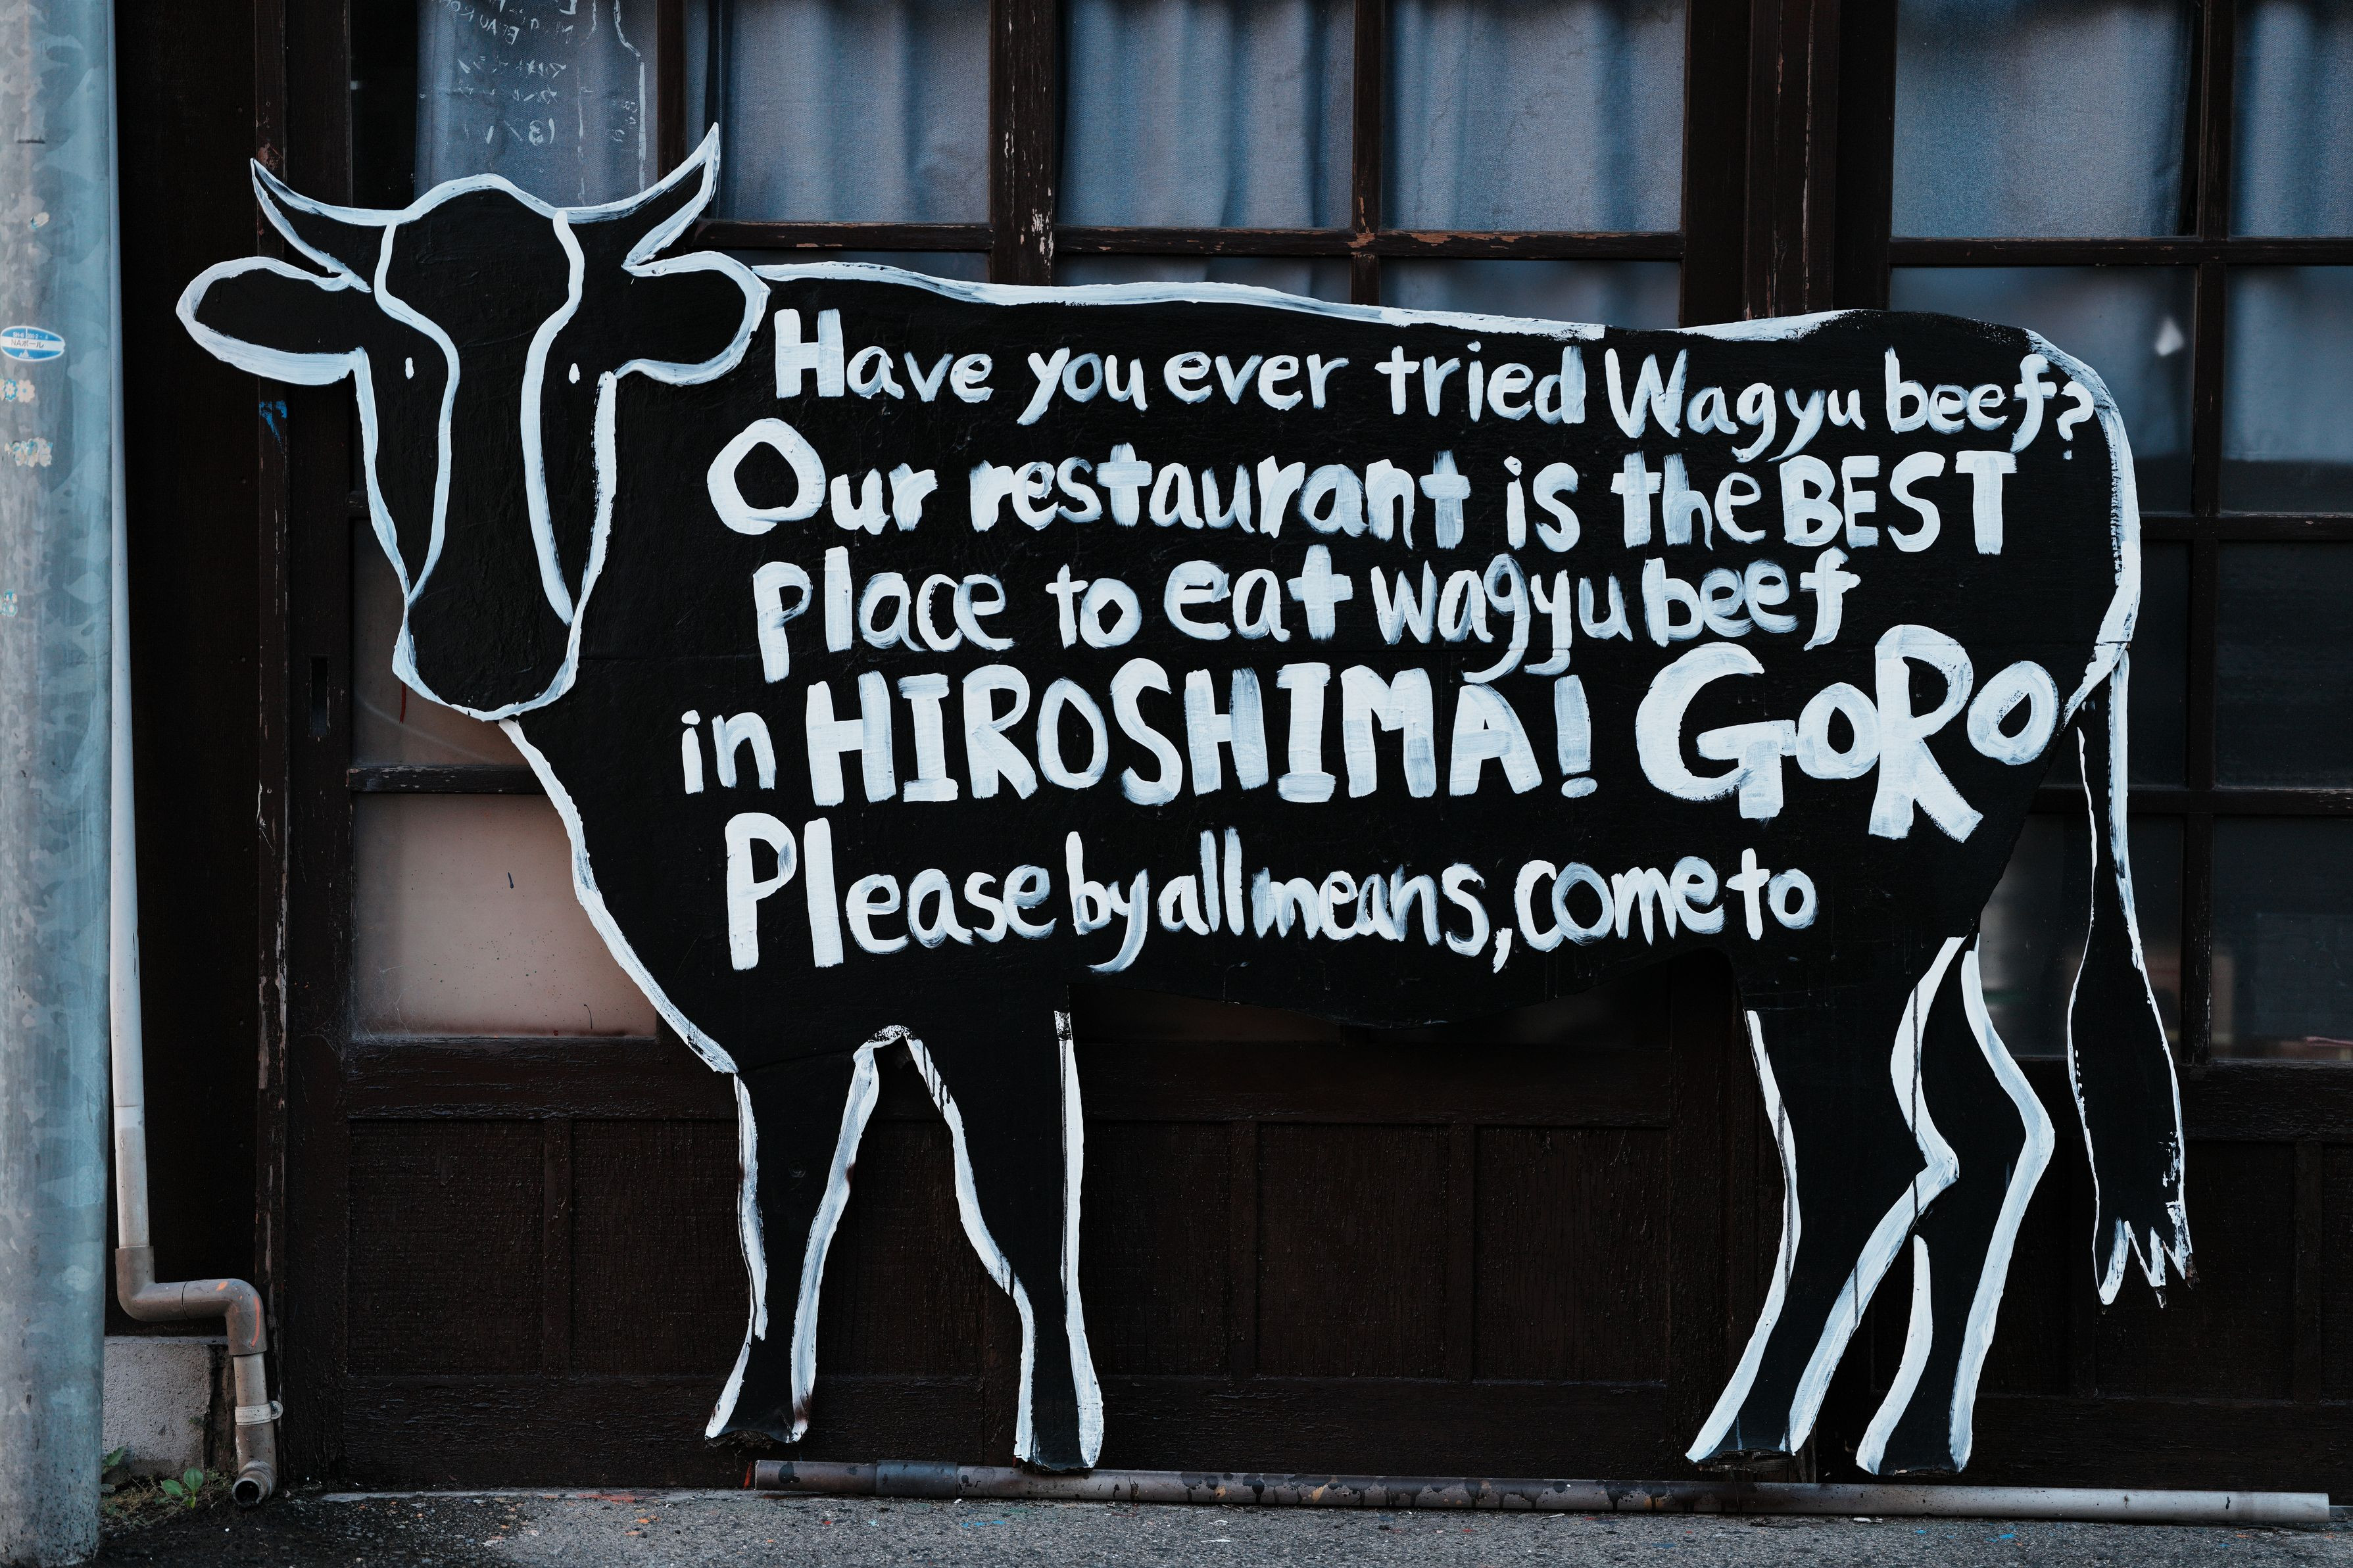 Have you ever tried Wagyu beef?
Our restaurant is the BEST
place to eat wagyu beef
in HIROSHIMA! GORO
Please by all means, come to